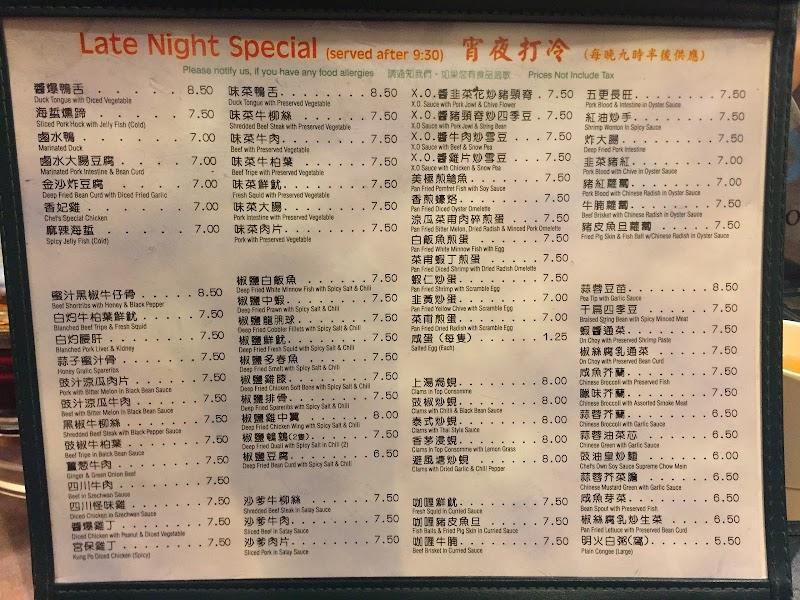 Late Night Special (served after 9:30) 宵夜打冷 (每晚九時半後供應)
Please notify us, if you have any food allergies 請通知我們，如果您有食品過敏 Prices Not Include Tax
醬爆鴨舌 8.50
Duck Tongue with Diced Vegetable
海蜇燻蹄 7.50
Sliced Pork Hock with Jelly Fish (Cold)
鹵水鴨 7.00
Marinated Duck
鹵水大腸豆腐 7.00
Marinated Pork Intestine & Bean Curd
金沙炸豆腐 7.00
Deep Fried Bean Curd with Diced Fried Garlic
香妃雞 7.00
Chef's Special Chicken
麻辣海蜇 7.00
Spicy Jelly Fish (Cold)
蜜汁黑椒牛仔骨 8.50
Beef Shortribs with Honey & Black Pepper
白灼牛柏葉鮮魷 7.50
Blanched Beef Tripe & Fresh Squid
白灼腰肝 7.50
Blanched Pork Liver & Kidney
蒜子蜜汁骨 7.50
Honey Gralic Spareribs
豉汁涼瓜肉片 7.50
Pork with Bitter Melon in Black Bean Sauce
豉汁涼瓜牛肉 7.50
Beef with Bitter Melon in Black Bean Sauce
黑椒牛柳絲 7.50
Shredded Beef Steak with Black Pepper Sauce
豉椒牛柏葉 7.50
Beef Tripe in Balck Bean Sauce
薑葱牛肉 7.50
Ginger & Green Onion Beef
四川牛肉 7.50
Beef in Szechwan Sauce
四川怪味雞 7.50
Diced Chicken in Szechwan Sauce
醬爆雞丁 7.50
Diced Chicken with Peanut & Diced Vegetable
宮保雞丁 7.50
Kung Po Diced Chicken (Spicy)
味菜鴨舌 8.50
Duck Tongue with Preserved Vegetable
味菜牛柳絲 7.50
Shredded Beef Steak with Preserved Vegetable
味菜牛肉 7.50
Beef with Preserved Vegetable
味菜牛柏葉 7.50
Beef Tripe with Preserved Vegetable
味菜鮮魷 7.50
Fresh Squid with Preserved Vegetable
味菜大腸 7.50
Pork Intestine with Preserved Vegetable
味菜肉片 7.50
Pork with Preserved Vegetable
椒鹽白飯魚 7.50
Deep Fried White Minnow Fish with Spicy Salt & Chili
椒鹽中蝦 7.50
Deep Fried Prawn with Spicy Salt & Chili
椒鹽龍脷球 7.50
Deep Fried Cobbler Fillets with Spicy Salt & Chili
椒鹽鮮魷 7.50
Deep Fried Fresh Squid with Spicy Salt & Chili
椒鹽多春魚 7.50
Deep Fried Smelt with Spicy Salt & Chili
椒鹽雞膝 7.50
Deep Fried Chicken Soft Bone with Spicy Salt & Chili
椒鹽排骨 7.50
Deep Fried Spareribs with Spicy Salt & Chili
椒鹽雞中翼 8.00
Deep Fried Chicken Wing with Spicy Salt & Chili
椒鹽鵪鶉(2隻) 7.50
Deep Fried Quail with Spicy Salt in Chili (2)
椒鹽豆腐 6.50
Deep Fried Bean Curd with Spicy Salt & Chili
沙爹牛柳絲 7.50
Shredded Beef Steak in Satay Sauce
沙爹牛肉 7.50
Sliced Beef in Satay Sauce
沙爹肉片 7.50
Sliced Pork in Satay Sauce
X.O.醬韭菜花炒豬頸脊 7.50
X.O Sauce with Pork Jowl & Chive Flower
X.O.醬豬頸脊炒四季豆 7.50
X.O Sauce with Pork Jowl & String Bean
X.O.醬牛肉炒雪豆 7.50
X.O Sauce with Beef & Snow Pea
X.O.醬雞片炒雪豆 7.50
X.O Sauce with Chicken & Snow Pea
美極煎鯧魚 7.50
Pan Fried Pomfret Fish with Soy Sauce
香煎蠔烙 7.50
Pan Fried Diced Oyster Omelette
涼瓜菜甫肉碎煎蛋 7.50
Pan Fried Bitter Melon, Dried Radish & Minced Pork Omelette
白飯魚煎蛋 7.50
Pan Fried White Minnow Fish with Egg
菜甫蝦丁煎蛋 7.50
Pan Fried Diced Shrimp with Dried Radish Omelette
蝦仁炒蛋 7.50
Pan Fried Shrimp with Scramble Egg
韭黃炒蛋 7.00
Pan Fried Yellow Chive with Scramble Egg
菜甫煎蛋 7.00
Pan Fried Dried Radish with Scramble Egg
咸蛋 (每隻) 1.25
Salted Egg (Each)
上湯焗蜆 8.00
Clams in Top Consomme
豉椒炒蜆 8.00
Clams with Chilli & Black Bean Sauce
泰式炒蜆 8.00
Clams with Thai Style Sauce
香茅浸蜆 8.00
Clams in Top Consomme with Lemon Grass
避風塘炒蜆 8.00
Clams with Dried Garlic & Chili Pepper
咖喱鮮魷 7.50
Fresh Squid in Curried Sauce
咖喱豬皮魚旦 7.50
Fish Balls & Fried Pig Skin in Curried Sauce
咖喱牛腩 7.50
Beef Brisket in Curried Sauce
五更長旺 7.50
Pork Blood & Intestine in Oyster Sauce
紅油炒手 7.50
Shrimp Wonton in Spicy Sauce
炸大腸 7.50
Deep Fried Pork Intestine
韭菜豬紅 7.00
Pork Blood with Chive in Oyster Sauce
豬紅蘿蔔 7.00
Pork Blood with Chinese Radish in Oyster Sauce
牛腩蘿蔔 7.50
Beef Brisket with Chinese Radish in Oyster Sauce
豬皮魚旦蘿蔔 7.50
Fried Pig Skin & Fish Ball w/Chinese Radish in Oyster Sauce
蒜蓉豆苗 8.50
Pea Tip with Garlic Sauce
干扁四季豆 7.50
Braised String Bean with Spicy Minced Meat
蝦醬通菜 7.50
On Choy with Preserved Shrimp Paste
椒絲腐乳通菜 7.50
On Choy with Preserved Bean Curd
咸魚芥蘭 7.50
Chinese Broccoli with Preserved Fish
臘味芥蘭 7.50
Chinese Broccoli with Assorted Smoke Meat
蒜蓉芥蘭 6.50
Chinese Broccoli with Garlic Sauce
蒜蓉油菜芯 6.50
Chinese Green with Garlic Sauce
豉油皇炒麵 6.00
Chefs Own Soy Sauce Supreme Chow Mein
蒜蓉芥菜膽 6.50
Chinese Mustard Green with Garlic Sauce
咸魚芽菜 6.50
Bean Spout with Preserved Fish
椒絲腐乳炒生菜 6.50
Pan Fried Lettuce with Preserved Bean Curd
明火白粥(窩) 5.50
Plain Congee (Large)